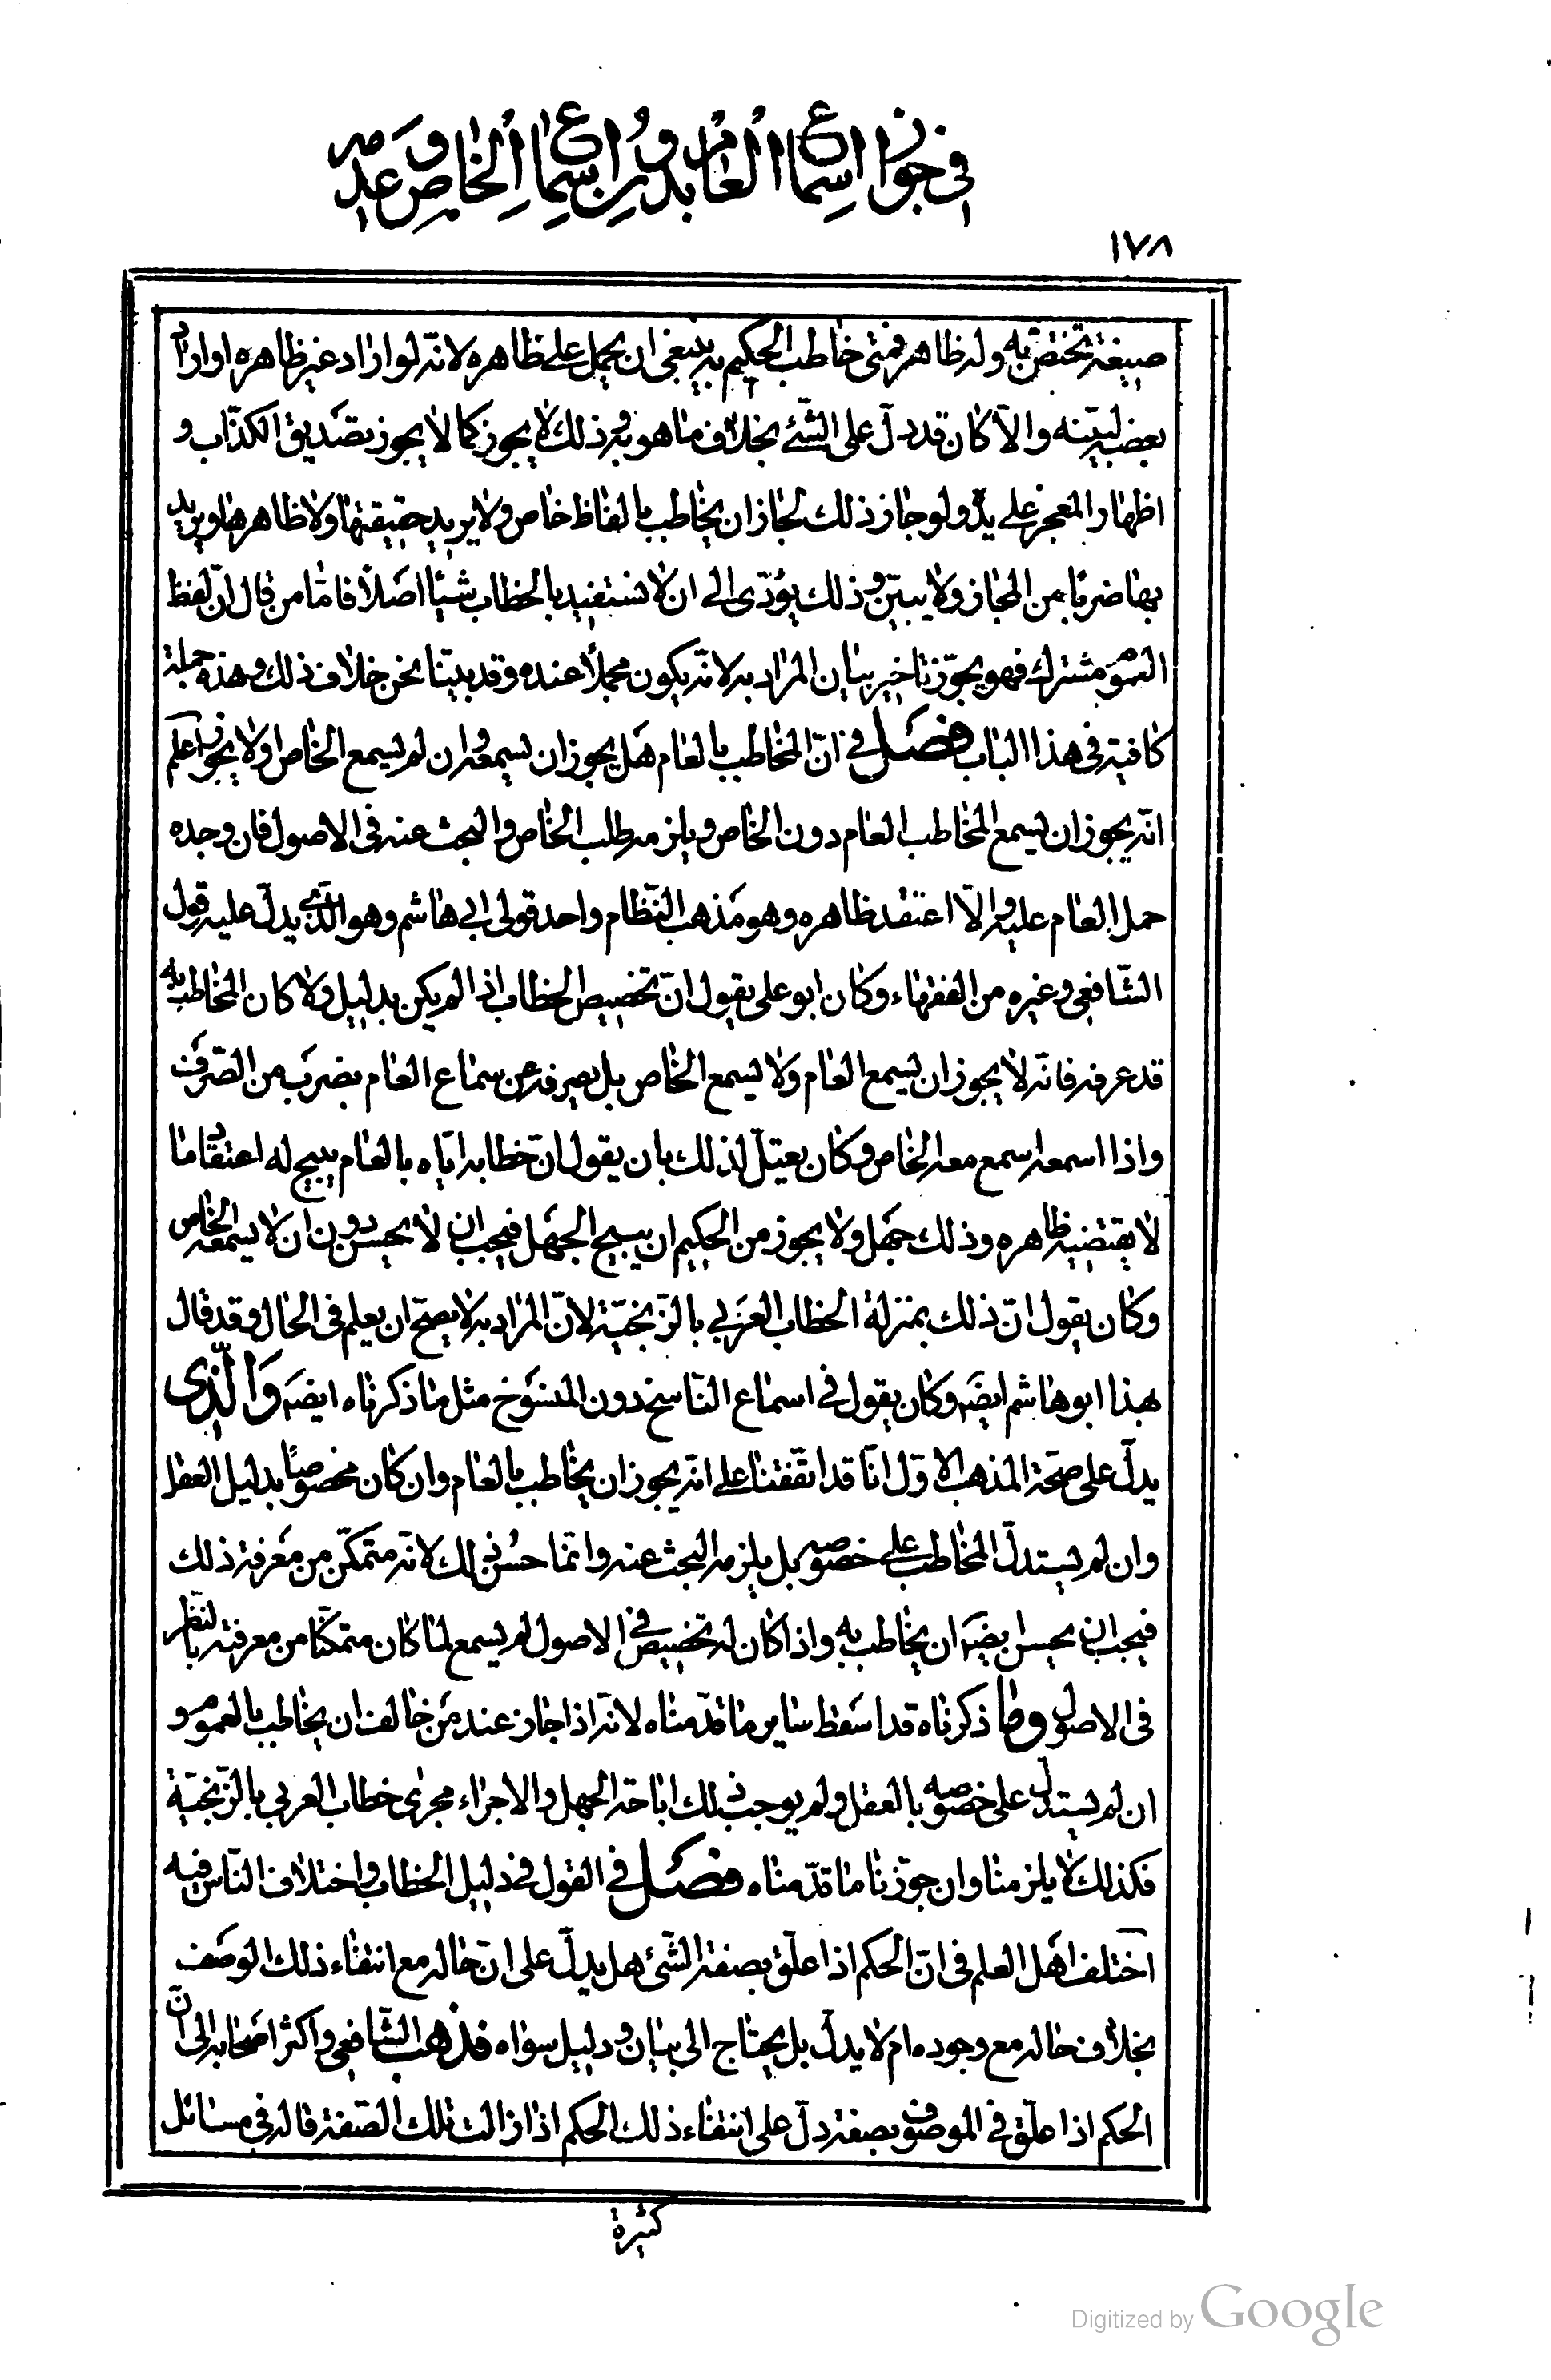 في جواز اسماع العام بدون اسماع الخاص وعدمه
١٧٨
صيغة تختص به وله ظاهر فمتى خاطب الحكيم به ينبغي ان يحمل على ظاهره لانه لو اراد غير ظاهره او اراد
بعضه لبيّنه والّا كان قد دلّ على الشّئ بخلاف ما هو به وذلك لا يجوز كما لا يجوز تصديق الكذّاب و
اظهار المعجز على يده ولو جاز ذلك لجاز ان يخاطب بالفاظ خاص ولا يريد حقيقتها ولا ظاهرها ويريد
بها ضربًا من المجاز ولا يبيّن وذلك يؤدّى الى ان لا نستفيد بالخطاب شيئًا اصلًا فامّا من قال انّ لفظ
العموم مشترك فهو يجوّز تاخير بيان المراد به لانّه يكون مجملًا عنده وقد بيّنا نحن خلاف ذلك وهذه جملة
كافية في هذا الباب فصل في انّ المخاطب بالعام هل يجوز ان يسمعه وان لم يسمع الخاص او لا يجوز اعلم
انّه يجوز ان يسمع المخاطب العام دون الخاص ويلزمه طلب الخاص والبحث عنه في الاصول فان وجده
حمل العام عليه والّا اعتقد ظاهره وهو مذهب النّظام واحد قولى ابي هاشم وهو الّذي يدلّ عليه قول
الشّافعي وغيره من الفقهاء وكان ابو علي يقول انّ تخصيص الخطاب اذا لم يكن بدليل ولا كان المخاطب به
قد عرفه فانّه لا يجوز ان يسمع العام ولا يسمع الخاص بل يصرفه عن سماع العام بضرب من الصّرف
واذا اسمعه اسمع معه الخاص وكان يعتلّ لذلك بان يقول انّ خطابه ايّاه بالعام يبيح له اعتقاد ما
لا يقتضيه ظاهره وذلك جهل ولا يجوز من الحكيم ان يبيح الجهل فيجب ان لا يحسن دون ان لا يسمعه الخاص
وكان يقول انّ ذلك بمنزلة الخطاب العربي بالزّنجيّة لانّ المراد به لا يصحّ ان يعلم في الحال وقد قال
بهذا ابو هاشم ايضَه وكان يقول في اسماع النّاسخ دون المنسوخ مثل ما ذكرناه ايضَه والّذى
يدلّ على صحّة المذهب الاوّل انّا قد اتّفقنا على انّه يجوز ان يخاطب بالعام وان كان مخصوصًا بدليل العقل
وان لم يستدلّ المخاطب على خصوصه بل يلزمه البحث عنه وانّما حسُن ذلك لانّه متمكّن من معرفة ذلك
فيجب ان يحسن ايضَه ان يخاطب به واذا كان له تخصيص في الاصول لم يسمع لمّا كان متمكّنًا من معرفته بالنّظر
في الاصول وما ذكرناه قد اسقط ساير ما قدّمناه لانّه اذا جاز عند من خالف ان يخاطب بالعموم و
ان لم يستدل على خصوصه بالعقل ولم يوجب ذلك اباحة الجهل والاجراء مجرى خطاب العربي بالزّنجيّة
فكذلك لا يلزمنا وان جوّزنا ما قدّمناه فصل في القول في دليل الخطاب واختلاف النّاس فيه
اختلف اهل العلم في انّ الحكم اذا علّق بصفة الشّئ هل يدلّ على انّ حاله مع انتفاء ذلك الوصف
بخلاف حاله مع وجوده ام لا يدلّ بل يحتاج الى بيان ودليل سواه فذهب الشّافعي واكثر اصحابه الى انّ
الحكم اذا علّق في الموصوف بصفة دلّ على انتفاء ذلك الحكم اذا زالت تلك الصّفة قاله في مسائل
كثيرة
Digitized by Google